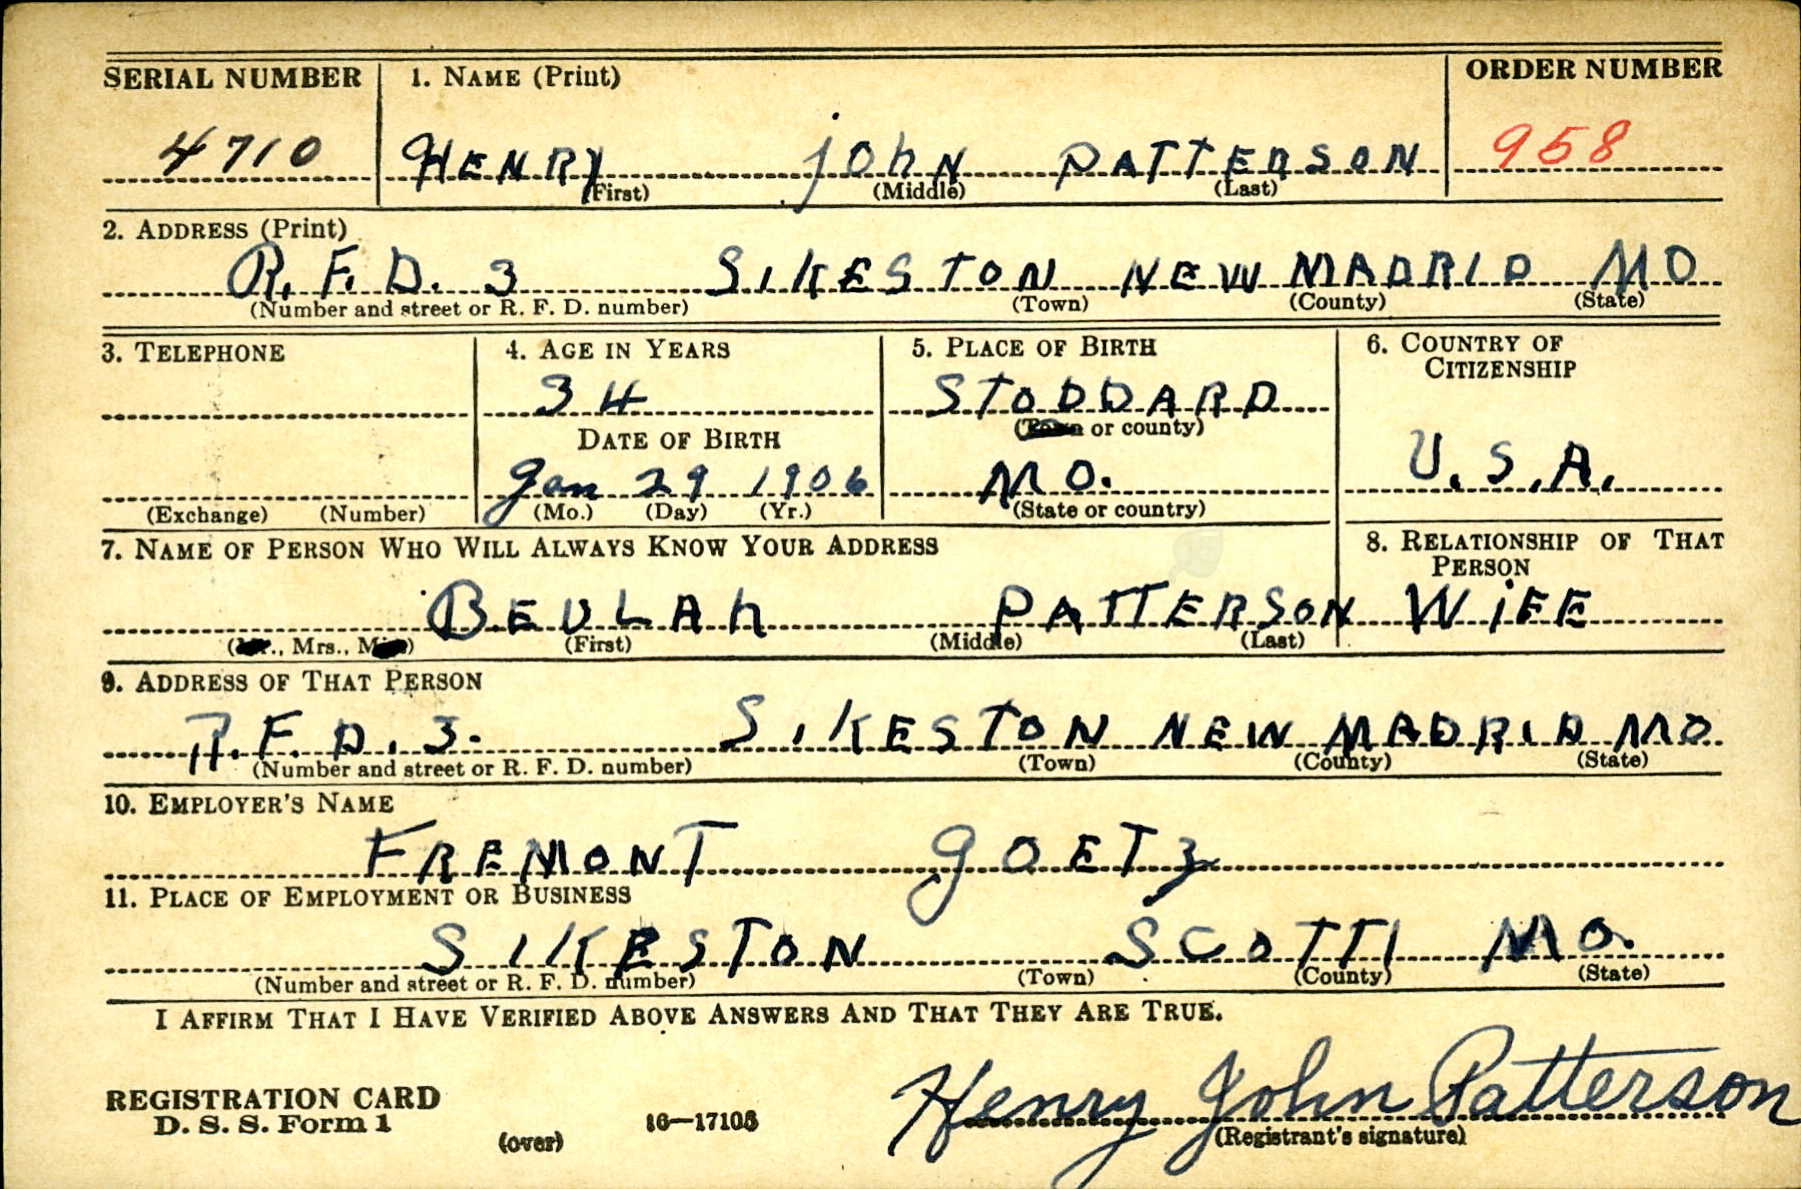 SERIAL NUMBER 1. NAME (Print) ORDER NUMBER
4710 HENRY JOhN PATTERSON 958
(First) (Middle) (Last)
2. ADDRESS (Print)
R. F. D. 3 SIKESTON NEW MADRID MO
(Number and street or R. F. D. number) (Town) (County) (State)
3. TELEPHONE 4. AGE IN YEARS 5. PLACE OF BIRTH 6. COUNTRY OF CITIZENSHIP
34 STODDARD
DATE OF BIRTH (Town or county)
Jan 29 1906 MO. U.S.A.
(Exchange) (Number) (Mo.) (Day) (Yr.) (State or country)
7. NAME OF PERSON WHO WILL ALWAYS KNOW YOUR ADDRESS 8. RELATIONSHIP OF THAT PERSON
BEULAh PATTERSON WiFE
(Mr., Mrs., Miss) (First) (Middle) (Last)
9. ADDRESS OF THAT PERSON
R.F.D. 3. SIKESTON NEW MADRID MO
(Number and street or R. F. D. number) (Town) (County) (State)
10. EMPLOYER'S NAME
FREMONT GOETZ
11. PLACE OF EMPLOYMENT OR BUSINESS
SIKESTON SCOTT MO.
(Number and street or R. F. D. number) (Town) (County) (State)
I AFFIRM THAT I HAVE VERIFIED ABOVE ANSWERS AND THAT THEY ARE TRUE.
REGISTRATION CARD
D. S. S. Form 1 (over) 16—17105 Henry John Patterson
(Registrant's signature)